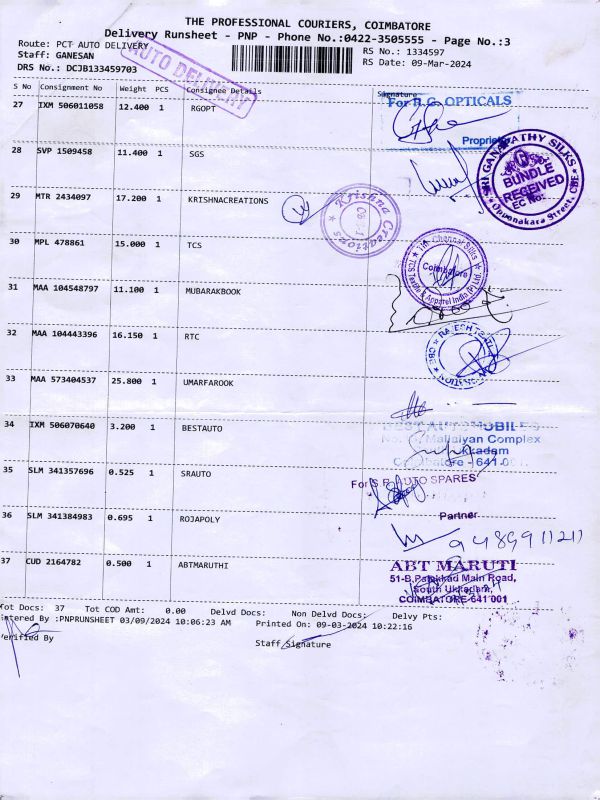 THE PROFESSIONAL COURIERS, COIMBATORE
Delivery Runsheet - PNP - Phone No.:0422-3505555 - Page No.:3
Route: PCT AUTO DELIVERY
RS No.: 1334597
Staff: GANESAN
RS Date: 09-Mar-2024
DRS No.: DCJB133459703
AUTO DELIVERY
S No Consignment No Weight PCS Consignee Details Signature
27 IXM 506011058 12.400 1 RGOPT
For R.G. OPTICALS
Proprietor
28 SVP 1509458 11.400 1 SGS
SRI GANAPATHY SILKS
BUNDLE
RECEIVED
EC No.
Oppanakara Street, CBE
29 MTR 2434097 17.200 1 KRISHNACREATIONS
Krishna Creations
30 MPL 478861 15.000 1 TCS
The Chennai Silks
Coimbatore
TCS Textile & Apparel India (P) Ltd.
31 MAA 104548797 11.100 1 MUBARAKBOOK
32 MAA 104443396 16.150 1 RTC
CBE
33 MAA 573404537 25.800 1 UMARFAROOK
34 IXM 506070640 3.200 1 BESTAUTO
BEST AUTOMOBILES
Complex
35 SLM 341357696 0.525 1 SRAUTO
For S R AUTO SPARES
Partner
36 SLM 341384983 0.695 1 ROJAPOLY
37 CUD 2164782 0.500 1 ABTMARUTHI
ABT MARUTI
51-B, Palakkad Main Road,
South Ukkadam,
COIMBATORE-641 001
Tot Docs: 37 Tot COD Amt: 0.00 Delvd Docs: Non Delvd Docs: Delvy Pts:
ntered By :PNPRUNSHEET 03/09/2024 10:06:23 AM Printed On: 09-03-2024 10:22:16
erified By Staff Signature